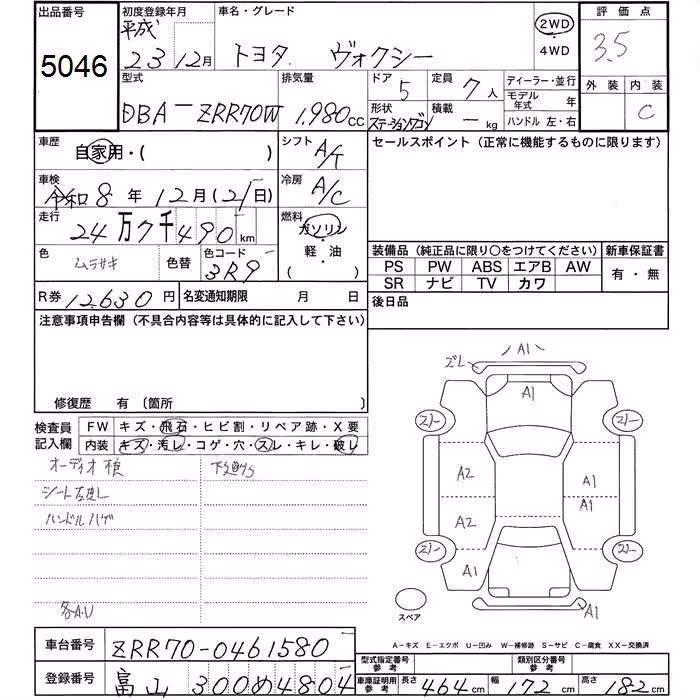 出品番号 初度登録年月 車名・グレード 評価点
5046 平成 23 12月 トヨタ ヴォクシー 2WD 4WD 3.5
外装 内装
C
型式 排気量 ドア 定員 ディーラー・並行
DBA-ZRR70W 1,980cc 5 7人 モデル年式 年
形状 ステーションワゴン 積載 - kg ハンドル 左・右
車歴 自家用・( ) シフト A/T セールスポイント (正常に機能するものに限ります)
車検 令和8年12月(21日) 冷房 A/C
走行 24万7千490km 燃料 ガソリン
軽・油
( )
色 ムラサキ 色替 色コード 3R9
装備品 (純正品に限り○をつけてください) 新車保証書
PS PW ABS エアB AW 有・無
SR ナビ TV カワ
R券 12,630円 名変通知期限 月 日 後日品
注意事項申告欄 (不具合内容等は具体的に記入して下さい)
修復歴 有 〔箇所
検査員記入欄 FW キズ・飛石・ヒビ割・リペア跡・X要
内装 キズ・汚レ・コゲ・穴・スレ・キレ・破レ
オーディオ樍 下廻りS
ハンドルハゲ
各A.U
ズレ A1
A1
A2 A1
A1
A2
A1 A1
スペア
A-キズ E-エクボ U-凹み W-補修跡 S-サビ C-腐食 XX-交換済
車台番号 ZRR70-0461580
型式指定番号 参考 類別区分番号 参考
登録番号 富山 300 め 4804
車庫証明用 参考 長さ 464cm 幅 172cm 高さ 182cm